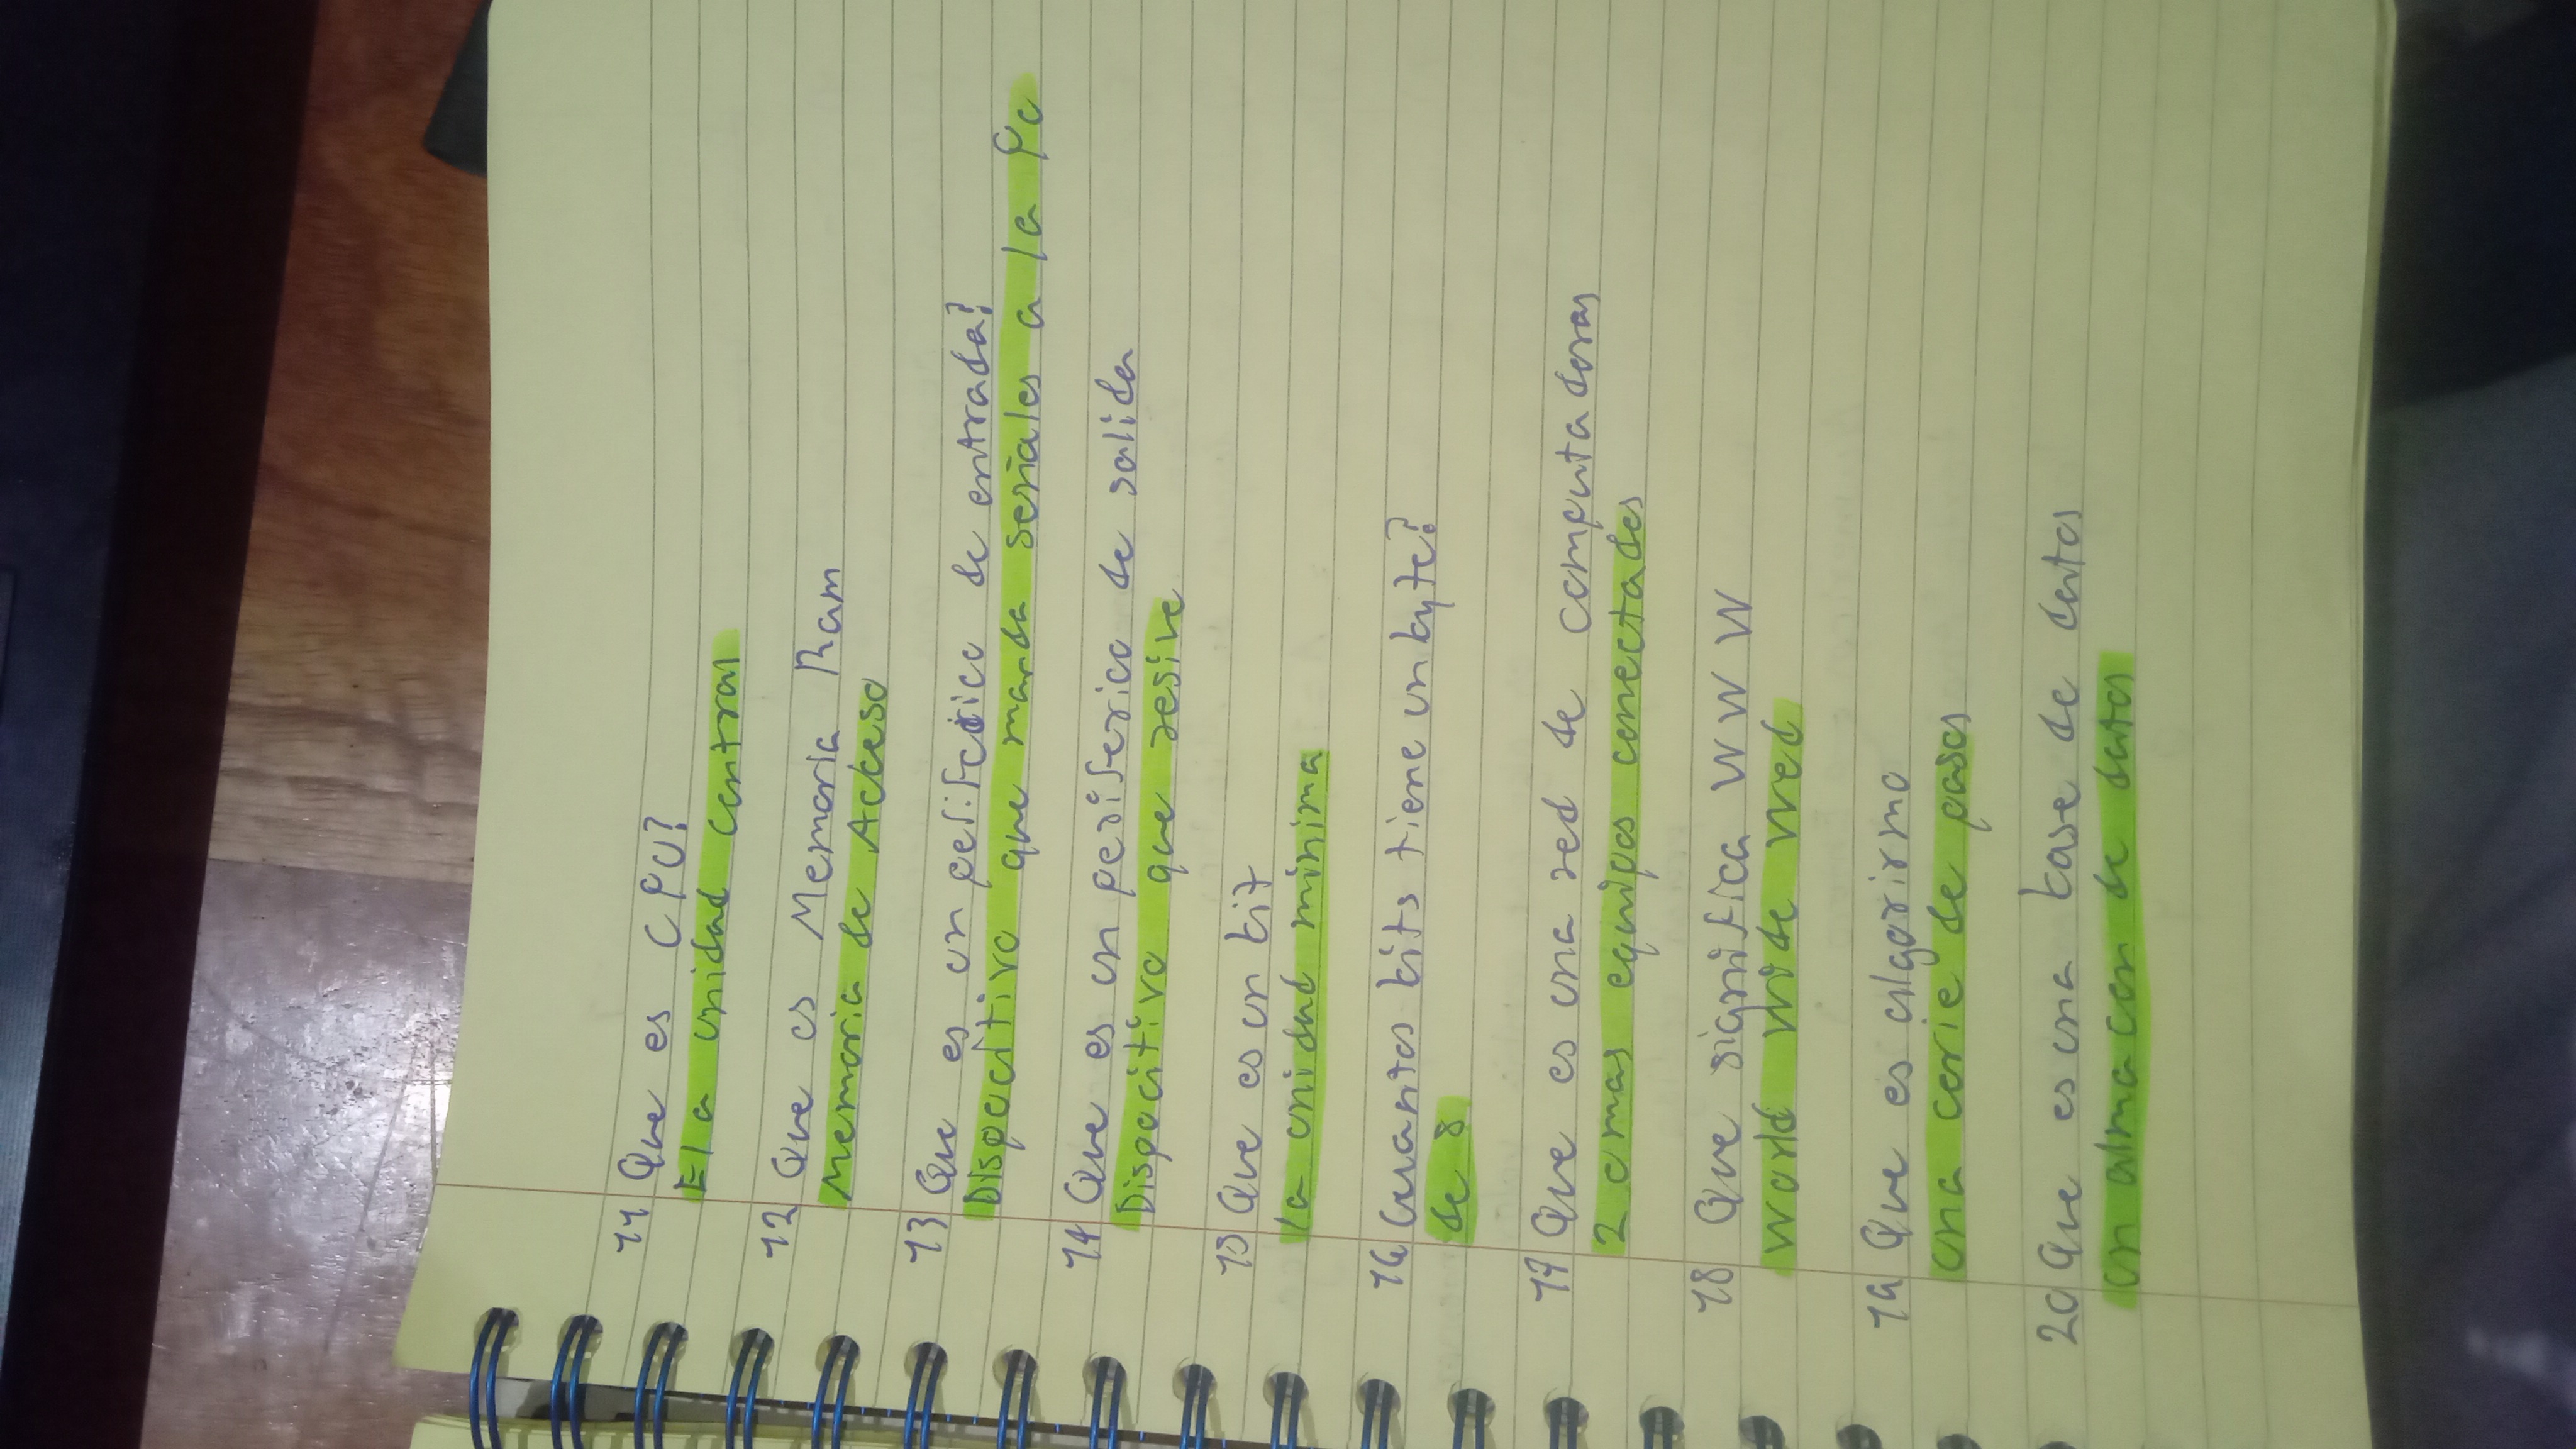 11 Que es CPU?
El a unidad central
12 Que es Memoria Ram
Memoria de Acceso
13 Que es un periferico de entrada?
Dispocitivo que manda señales a la Pc
14 Que es un periferico de salida
Dispocitivo que resive
15 Que es un bit
la unidad minima
16 Cuantos bits tiene un byte?
de 8
17 Que es una red de computadoras
2 o mas equipos conectades
18 Que significa W W W
World Wide Wed
19 Que es algorirmo
una cerie de pasos
20 Que es una base de datos
un almacen de datos